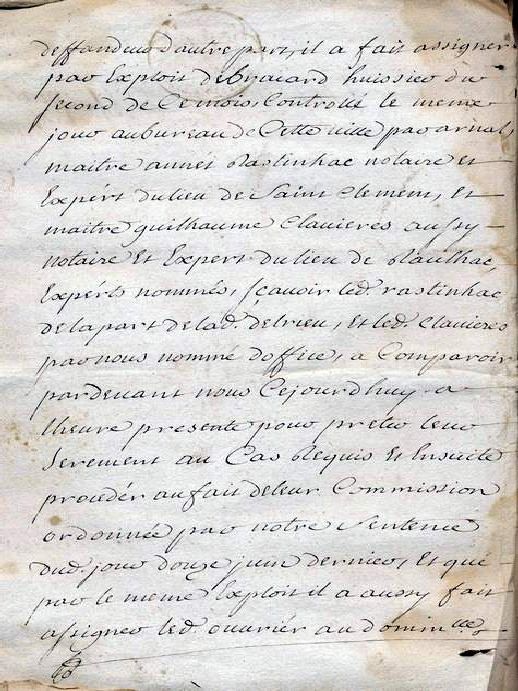 deffandeur d'autre part, il a fait assigner
par Exploit de huissier du
second de Ce mois, Controllé le meme
jour au bureau de Cette ville par arnal,
maitre annet Rastinhac notaire et
Expért du lieu de Saint Clement, et
maitre guilhaume Clavieres aussy
notaire Et Expert du lieu de Raulhac,
Expérts nommés, sçavoir led. rastinhac
de la part de lad. delrieu, et led. Clavieres
par nous nommé d'office, a Comparoir
pardevant nous Cejourd'huy a
lheure presente pour preter leur
Serement au Cas Requis et Ensuite
procéder au fait de leur Commission
ordonnée par notre Sentence
dud. jour douze juin dernier, Et que
par le meme Exploit il a aussy fait
assigner led. ouvrier au domin